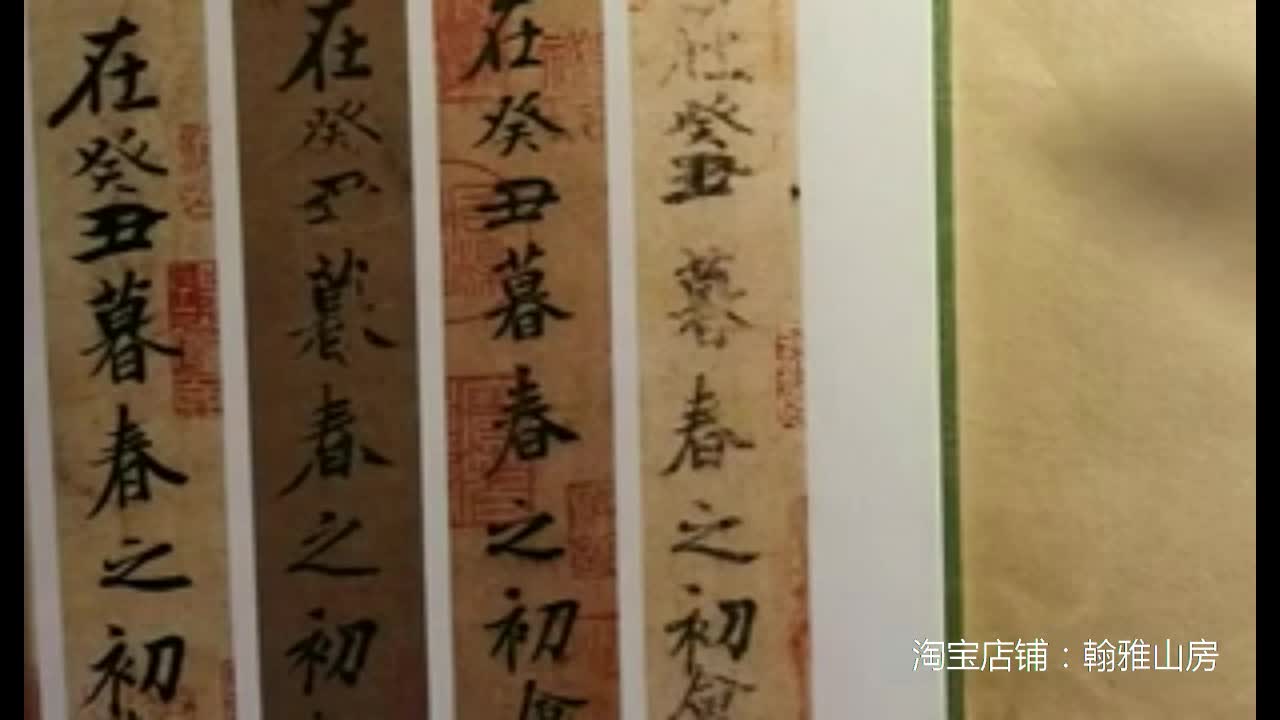 在癸丑暮春之初
在癸丑暮春之初
在癸丑暮春之初會
在癸丑暮春之初會
淘宝店铺：翰雅山房